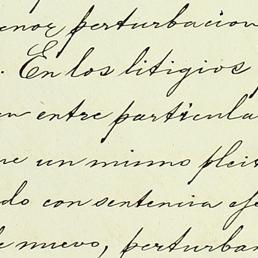 enor perturbacion
. En los litigios
en entre particula
ue un mismo pleit
do con sentencia eje
de nuevo, perturban